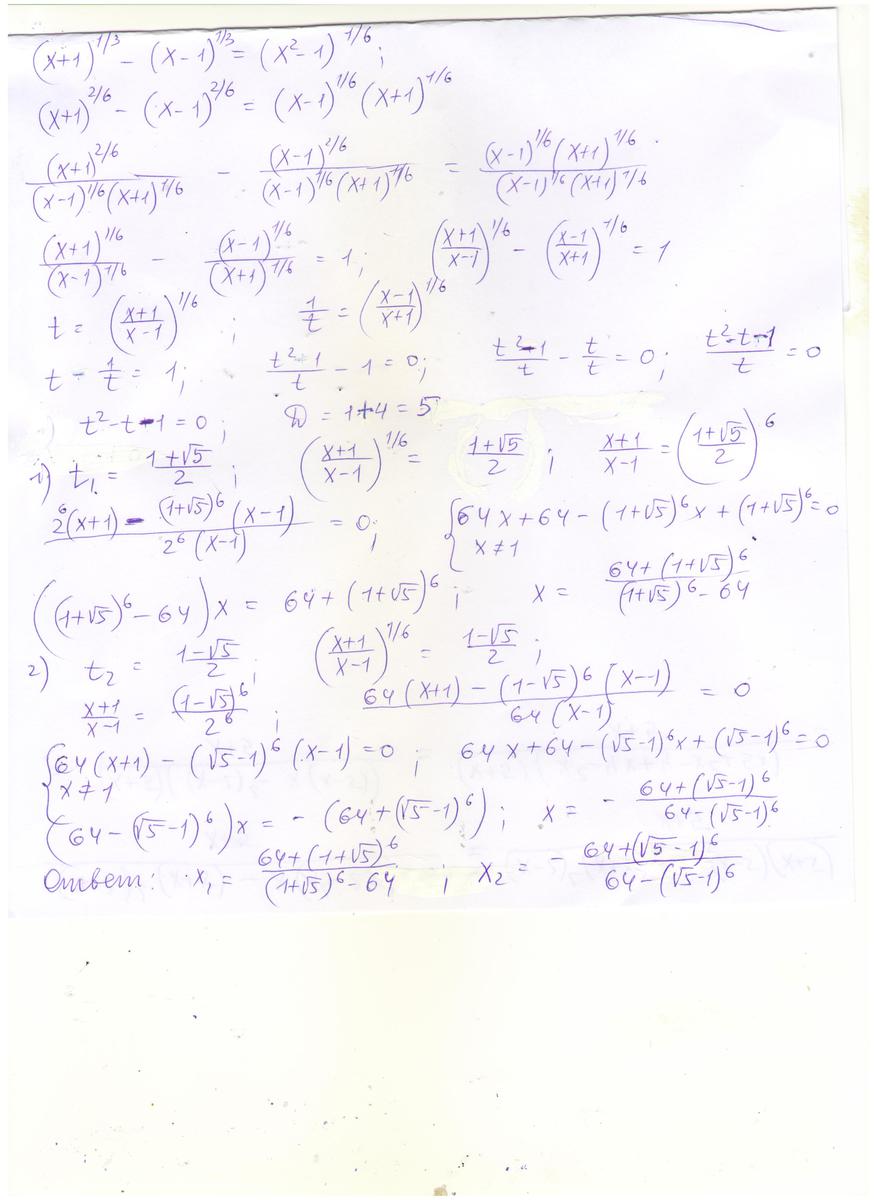 (x+1)^1/3 − (x−1)^1/3 = (x²−1)^1/6 ;
(x+1)^2/6 − (x−1)^2/6 = (x−1)^1/6 (x+1)^1/6
(x+1)^2/6 / (x−1)^1/6 (x+1)^1/6 − (x−1)^2/6 / (x−1)^1/6 (x+1)^1/6 = (x−1)^1/6 (x+1)^1/6 / (x−1)^1/6 (x+1)^1/6
(x+1)^1/6 / (x−1)^1/6 − (x−1)^1/6 / (x+1)^1/6 = 1 ; ((x+1)/(x−1))^1/6 − ((x−1)/(x+1))^1/6 = 1
t = ((x+1)/(x−1))^1/6 ; 1/t = ((x−1)/(x+1))^1/6
t − 1/t = 1 ; (t²−1)/t − 1 = 0 ; (t²−1)/t − t/t = 0 ; (t²−t−1)/t = 0
t²−t−1 = 0 ; D = 1+4 = 5
1) t₁ = (1+√5)/2 ; ((x+1)/(x−1))^1/6 = (1+√5)/2 ; (x+1)/(x−1) = ((1+√5)/2)^6
(2^6(x+1) − (1+√5)^6 (x−1)) / (2^6 (x−1)) = 0 ; { 64x+64 − (1+√5)^6 x + (1+√5)^6 = 0
x ≠ 1
((1+√5)^6 − 64)x = 64+(1+√5)^6 ; x = (64+(1+√5)^6) / ((1+√5)^6 − 64)
2) t₂ = (1−√5)/2 ; ((x+1)/(x−1))^1/6 = (1−√5)/2 ;
(x+1)/(x−1) = (1−√5)^6 / 2^6 ; (64(x+1) − (1−√5)^6 (x−1)) / (64(x−1)) = 0
{ 64(x+1) − (√5−1)^6 (x−1) = 0 ; 64x+64−(√5−1)^6 x+(√5−1)^6 = 0
x ≠ 1
(64−(√5−1)^6)x = −(64+(√5−1)^6) ; x = − (64+(√5−1)^6) / (64−(√5−1)^6)
Ответ: x₁ = (64+(1+√5)^6) / ((1+√5)^6 − 64) ; x₂ = − (64+(√5−1)^6) / (64−(√5−1)^6)